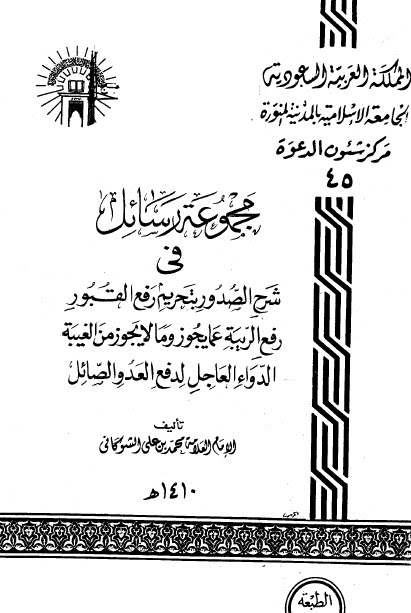 المملكة العربية السعودية
الجامعة الاسلامية بالمدينة المنورة
مركز شئون الدعوة
٤٥
مجموعة رسائل
في
شرح الصدور بتحريم رفع القبور
رفع الريبة عما يجوز وما لا يجوز من الغيبة
الدواء العاجل لدفع العدو الصائل
تأليف
الإمام العلامة محمد بن علي الشوكاني
١٤١٠هـ
الطبعة